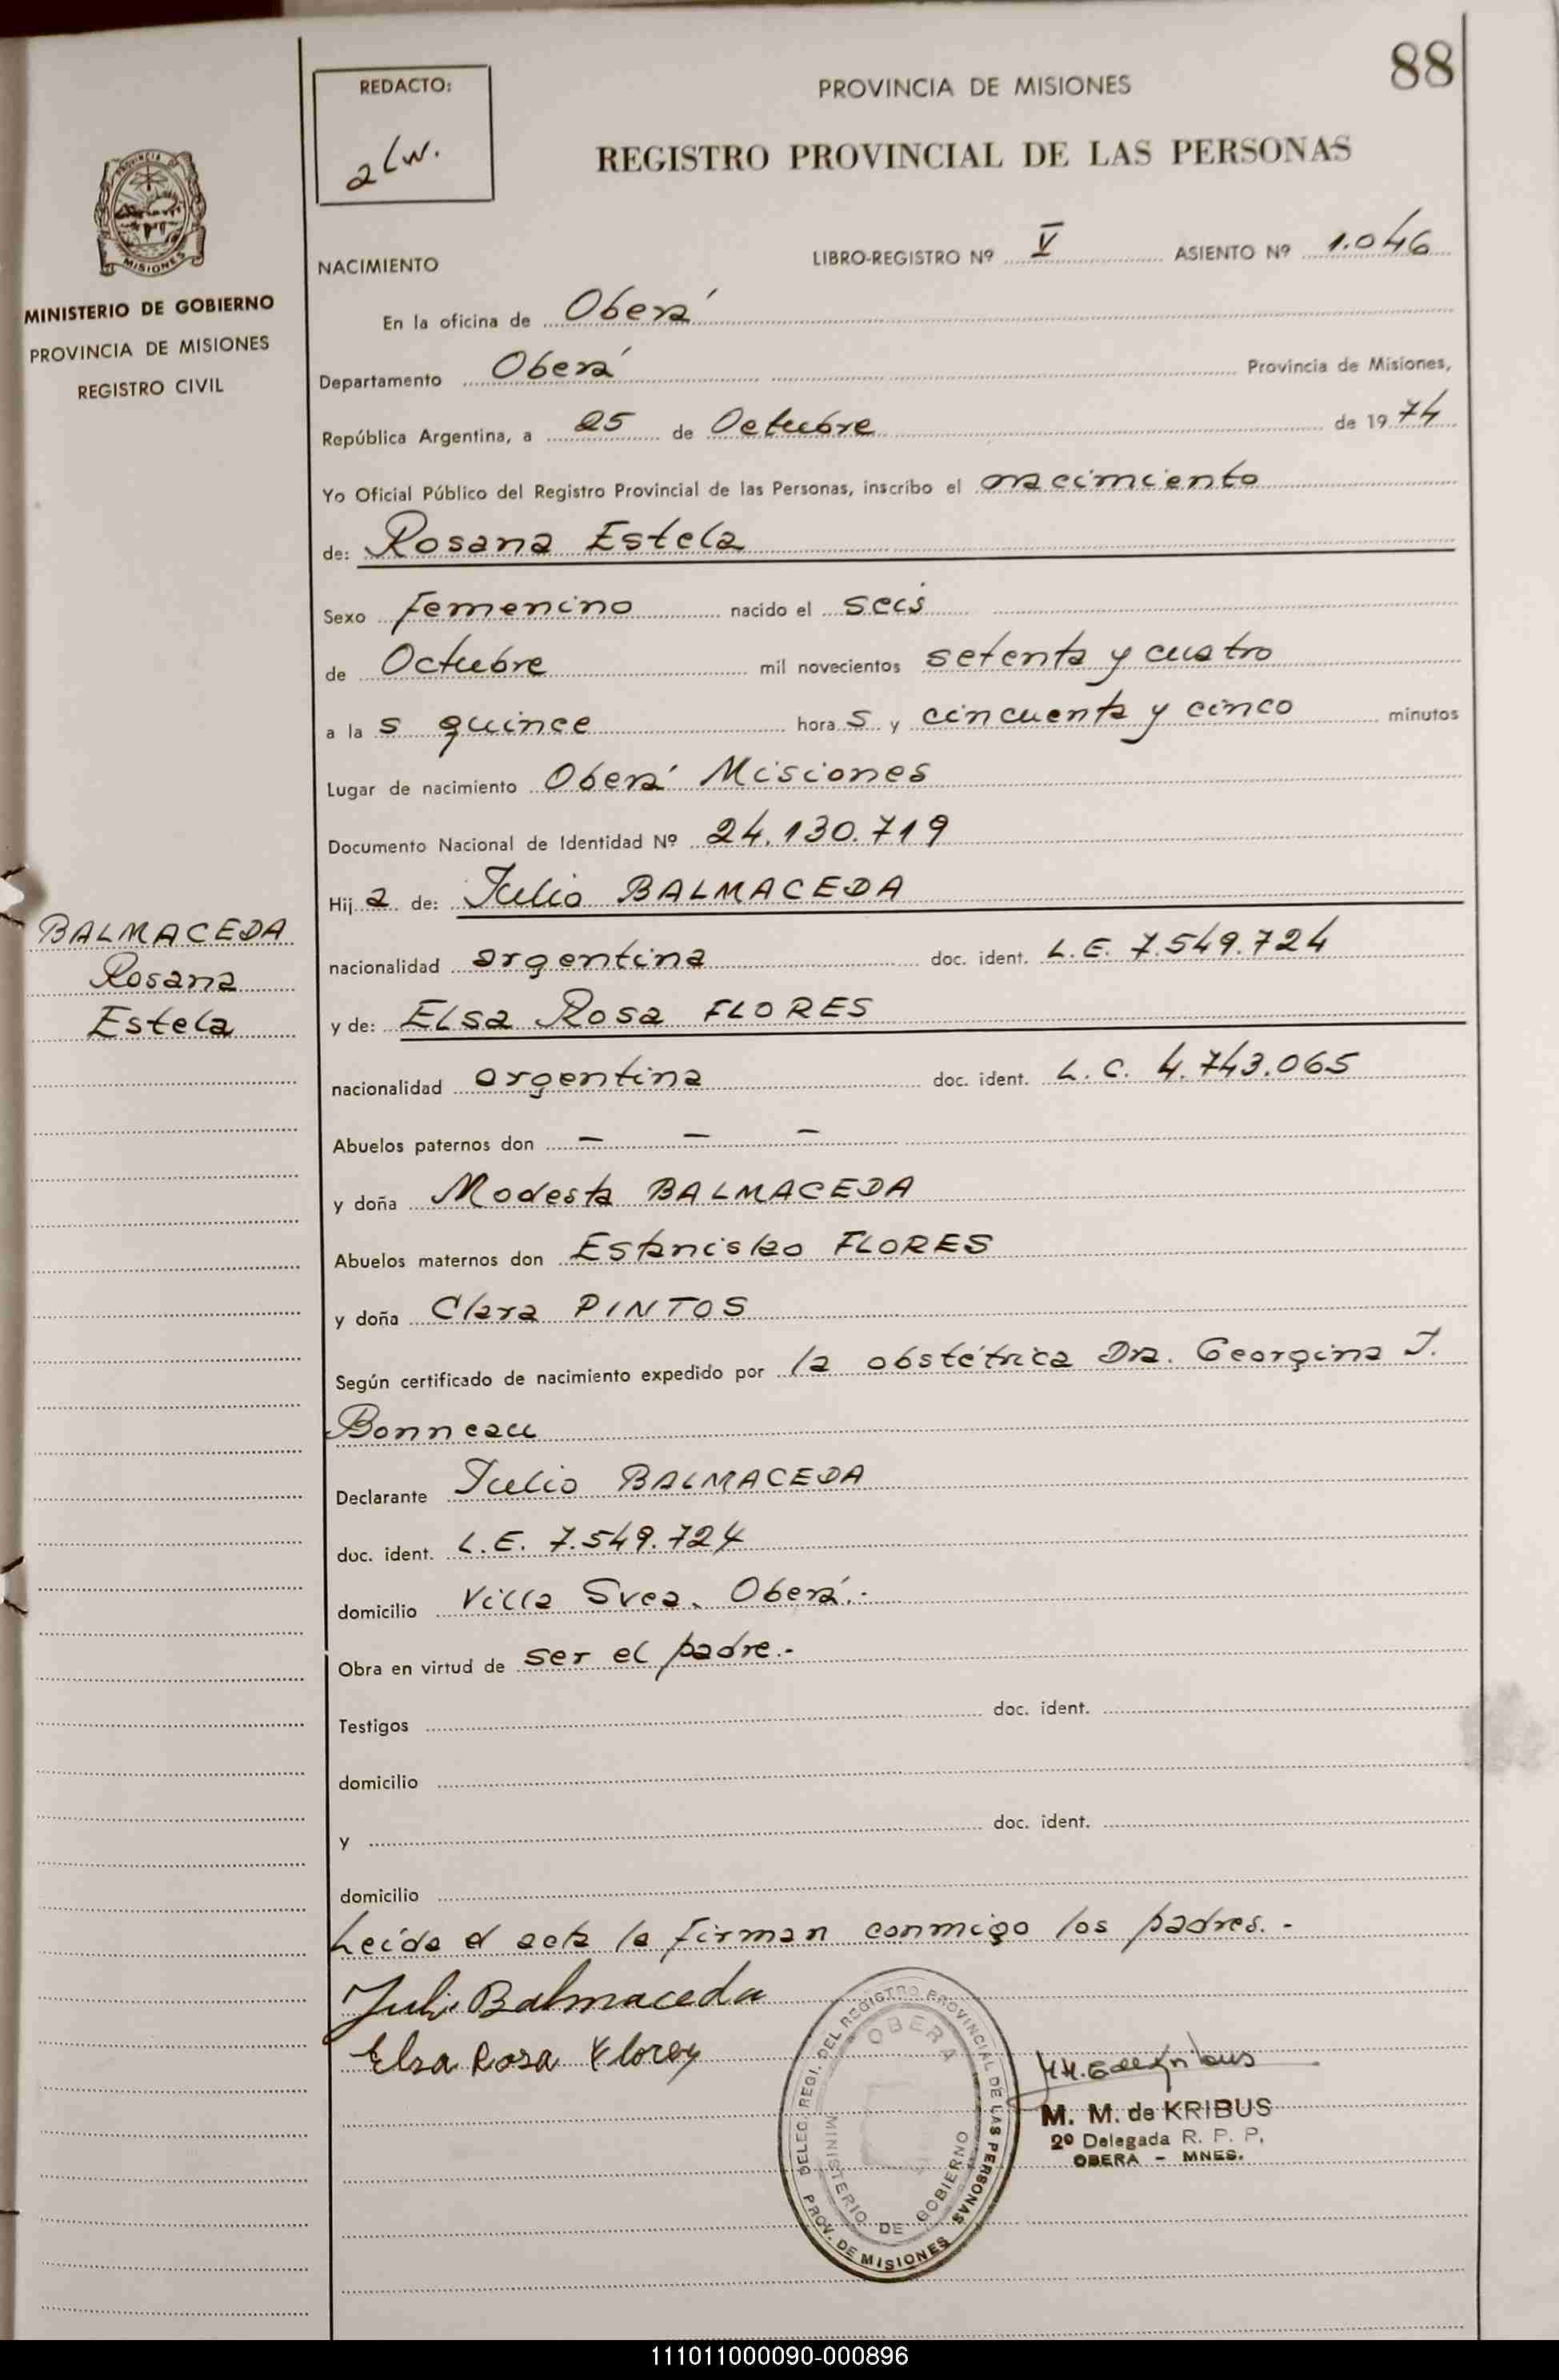 88
REDACTO:
PROVINCIA DE MISIONES
REGISTRO PROVINCIAL DE LAS PERSONAS
PROVINCIA
MISIONES
MINISTERIO DE GOBIERNO
PROVINCIA DE MISIONES
REGISTRO CIVIL
NACIMIENTO LIBRO-REGISTRO Nº V ASIENTO Nº 1.046
En la oficina de Oberá
Departamento Oberá Provincia de Misiones,
República Argentina, a 25 de Octubre de 1974
Yo Oficial Público del Registro Provincial de las Personas, inscribo el nacimiento
de: Rosana Estela
Sexo Femenino nacido el seis
de Octubre mil novecientos setenta y cuatro
a las quince horas y cincuenta y cinco minutos
Lugar de nacimiento Oberá Misiones
Documento Nacional de Identidad Nº 24.130.719
Hija de: Julio BALMACEDA
BALMACEDA
Rosana
Estela
nacionalidad argentina doc. ident. L.E. 7.549.724
y de: Elsa Rosa FLORES
nacionalidad argentina doc. ident. L.C. 4.743.065
Abuelos paternos don — — —
y doña Modesta BALMACEDA
Abuelos maternos don Estanislao FLORES
y doña Clara PINTOS
Según certificado de nacimiento expedido por la obstétrica Dra. Georgina J.
Bonneau
Declarante Julio BALMACEDA
doc. ident. L.E. 7.549.724
domicilio Villa Svea. Oberá.-
Obra en virtud de ser el padre.-
Testigos doc. ident.
domicilio
y doc. ident.
domicilio
Leída el acta la firman conmigo los padres.-
Julio Balmaceda
Elsa Rosa Flores
DELEG. REGI. DEL REGISTRO PROVINCIAL DE LAS PERSONAS
PROV. DE MISIONES
OBERA
MINISTERIO DE GOBIERNO
M. M. de KRIBUS
2º Delegada R. P. P.
OBERA - MNES.
111011000090-000896